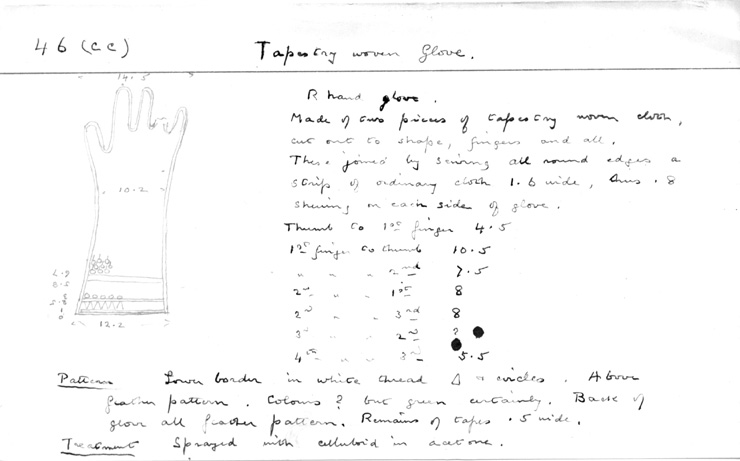 46 (cc) Tapestry woven Glove.
14.5
R hand glove.
Made of two pieces of tapestry woven cloth,
cut out to shape, fingers and all.
These joined by sewing all round edges a
strip of ordinary cloth 1.6 wide, thus .8
shewing on each side of glove.
10.2
Thumb to 1st finger 4.5
1st finger to thumb 10.5
" " " 2nd 7.5
2nd " " 1st 8
2nd " " 3rd 8
3rd " " 2nd ?
4th " " 3rd 5.5
12.2
Pattern Lower border in white thread Δ & circles. Above
feather pattern. Colours? but green certainly. Back of
glove all feather pattern. Remains of tapes .5 wide.
Treatment Sprayed with celluloid in acetone.